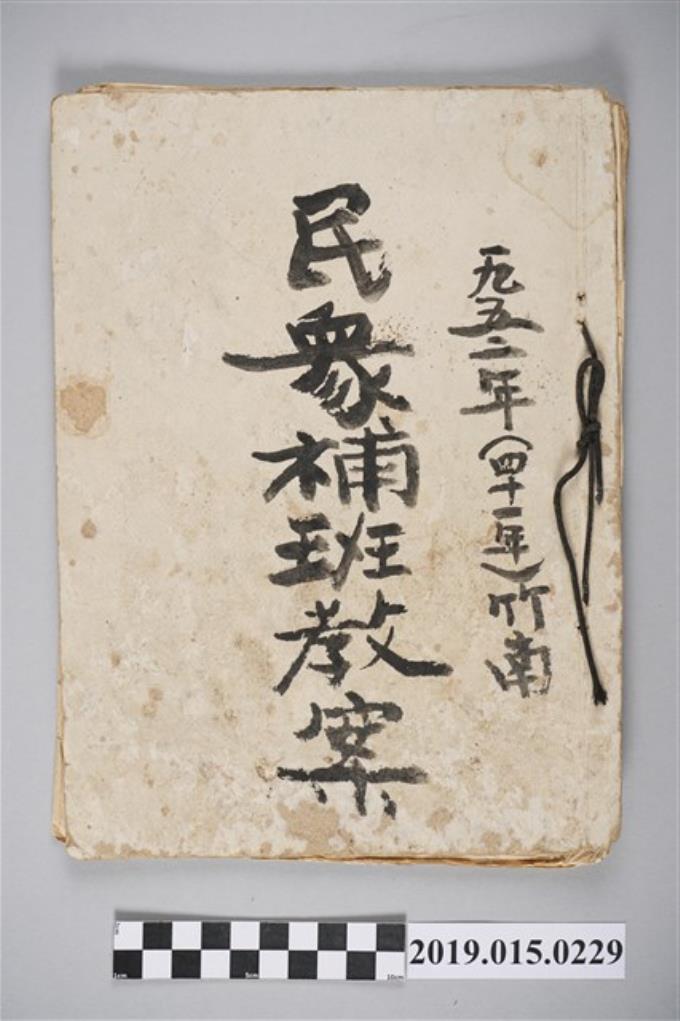 一九五二年(四十一年)竹南
民眾補班教案
2019.015.0229
1cm 5cm 10cm